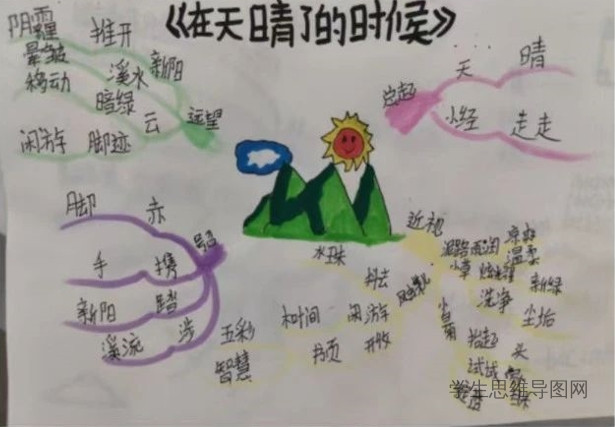 《在天晴了的时候》
阴霾
晕皱
移动
推开
溪水
新阳
暗绿
云
闲游
脚迹
远望
总起
天
晴
小径
走走
脚
赤
手
携
新阳
踏
溪流
涉
五彩
智慧
近视
泥路
雨润
凉爽
温柔
小草
炫耀
新绿
洗净
尘垢
抬起
头
试试
抖去
闲游
树间
书页
开收
学生思维导图网